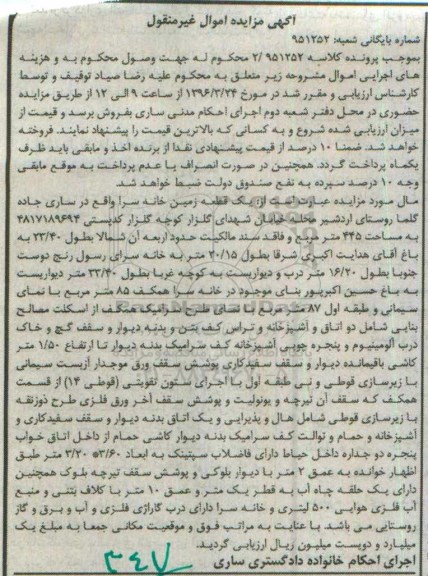 آگهی مزایده اموال غیرمنقول
شماره بایگانی شعبه: ۹۵۱۲۵۲
بموجب پرونده کلاسه ۹۵۱۲۵۲ /۲ محکوم له جهت وصول محکوم به و هزینه
های اجرایی اموال مشروحه زیر متعلق به محکوم علیه رضا صیاد توقیف و توسط
کارشناس ارزیابی و مقرر شد در مورخ ۱۳۹۶/۳/۲۴ از ساعت ۹ الی ۱۲ از طریق مزایده
حضوری در محل دفتر شعبه دوم اجرای احکام مدنی ساری بفروش برسد و قیمت از
میزان ارزیابی شده شروع و به کسانی که بالاترین قیمت را پیشنهاد نمایند. فروخته
خواهد شد. ضمنا ۱۰ درصد از قیمت پیشنهادی نقدا از برنده اخذ و مابقی باید ظرف
یکماه پرداخت گردد. همچنین در صورت انصراف یا عدم پرداخت به موقع مابقی
وجه ۱۰ درصد سپرده به نفع صندوق دولت ضبط خواهد شد.
مال مورد مزایده عبارت است از: یک قطعه زمین خانه سرا واقع در ساری جاده
گلما روستای اردشیر محله خیابان شهدای گلزار کوچه گلزار کدپستی ۴۸۱۷۱۸۹۶۹۴
به مساحت ۴۴۵ متر مربع و فاقد سند مالکیت حدود اربعه آن شمالا بطول ۳۳/۴۰ به
باغ آقای هدایت اکبری شرقا بطول ۲۰/۱۵ متر به خانه سرای رسول رنج دوست
جنوبا بطول ۱۶/۲۰ متر درب و دیواریست به کوچه غربا بطول ۳۳/۴۰ متر دیواریست
به باغ حسین اکبرپور بنای موجود در خانه سرا همکف ۸۵ متر مربع با نمای
سیمانی و طبقه اول ۸۷ متر مربع با نمای طرح سرامیک همکف از اسکلت مصالح
بنایی شامل دو اتاق و آشپزخانه و تراس کف بتن و بدنه دیوار و سقف گچ و خاک
درب آلومینیوم و پنجره چوبی آشپزخانه کف سرامیک بدنه دیوار تا ارتفاع ۱/۵۰ متر
کاشی باقیمانده دیوار و سقف سفیدکاری پوشش سقف ورق موجدار آزبست سیمانی
با زیرسازی قوطی و نی طبقه اول با اجرای ستون تقویتی (قوطی ۱۴) از قسمت
همکف که سقف آن تیرچه و یونولیت و پوشش سقف آخر ورق فلزی طرح ذوزنقه
با زیرسازی قوطی شامل هال و پذیرایی و یک اتاق بدنه دیوار و سقف سفیدکاری و
آشپزخانه و حمام و توالت کف سرامیک بدنه دیوار کاشی حمام از داخل اتاق خواب
پنجره دو جداره داخل حیاط دارای فاضلاب سپتینک به ابعاد ۳/۶۰* ۳/۲۰ متر طبق
اظهار خوانده به عمق ۲ متر با دیوار بلوکی و پوشش سقف تیرچه بلوک همچنین
دارای یک حلقه چاه آب به قطر یک متر و عمق ۱۰ متر با کلاف بتنی و منبع
آب فلزی هوایی ۵۰۰ لیتری و خانه سرا دارای درب گاراژی فلزی و آب و برق و گاز
روستایی می باشد. با عنایت به مراتب فوق و موقعیت مکانی جمعا به مبلغ یک
میلیارد و دویست میلیون ریال ارزیابی گردید.
اجرای احکام خانواده دادگستری ساری
۳۴۷